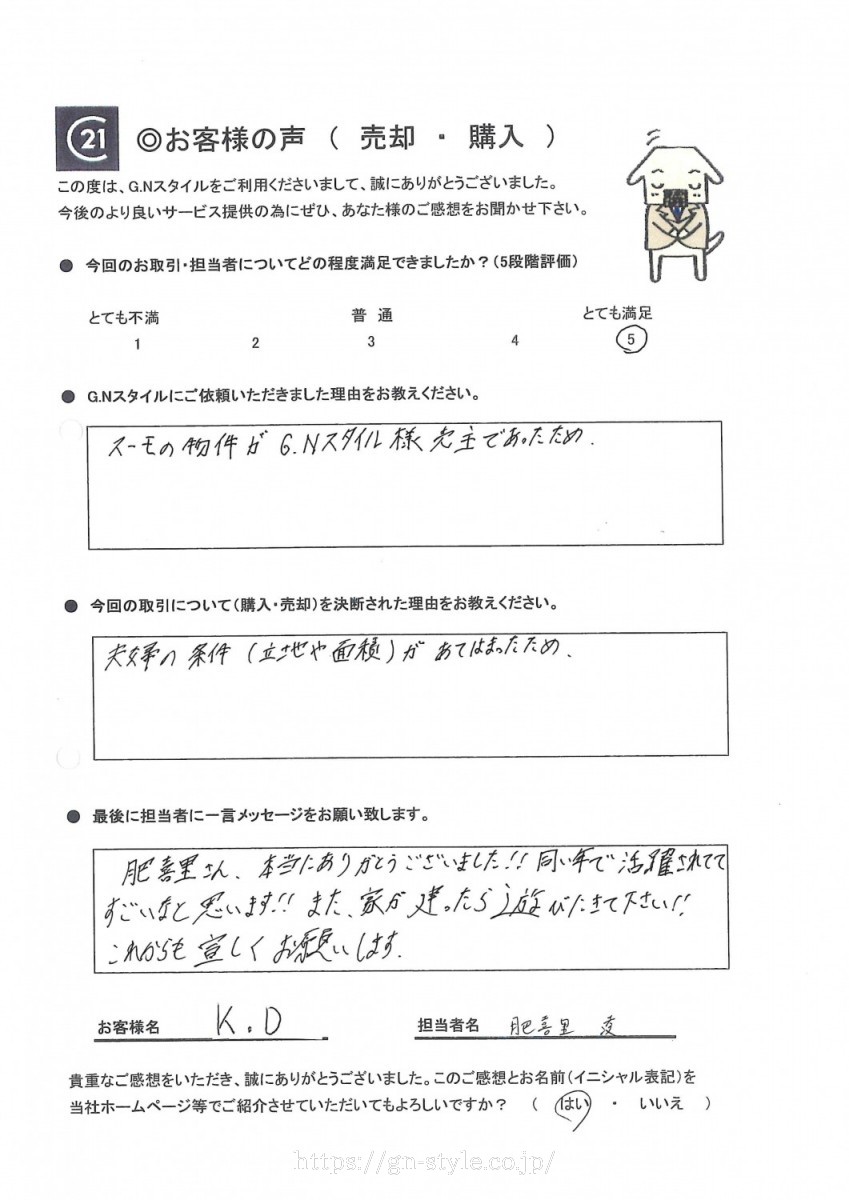 C21
◎お客様の声 ( 売却 ・ 購入 )
この度は、G.Nスタイルをご利用くださいまして、誠にありがとうございました。
今後のより良いサービス提供の為にぜひ、あなた様のご感想をお聞かせ下さい。
● 今回のお取引・担当者についてどの程度満足できましたか?(5段階評価)
とても不満 普 通 とても満足
1 2 3 4 5
● G.Nスタイルにご依頼いただきました理由をお教えください。
スーモの物件が G.Nスタイル様 売主であったため.
● 今回の取引について(購入・売却)を決断された理由をお教えください。
夫婦の 条件 (立地や面積)が あてはまったため、
● 最後に担当者に一言メッセージをお願い致します。
肥喜里さん、本当にありがとうございました!! 同い年で活躍されてて
すごいなと 思います!! また、家が 建ったら 遊びにきて下さい!!
これからも 宜しく お願いします.
お客様名 K.D 担当者名 肥喜里
貴重なご感想をいただき、誠にありがとうございました。このご感想とお名前(イニシャル表記)を
当社ホームページ等でご紹介させていただいてもよろしいですか? ( はい ・ いいえ )
https://gn-style.co.jp/